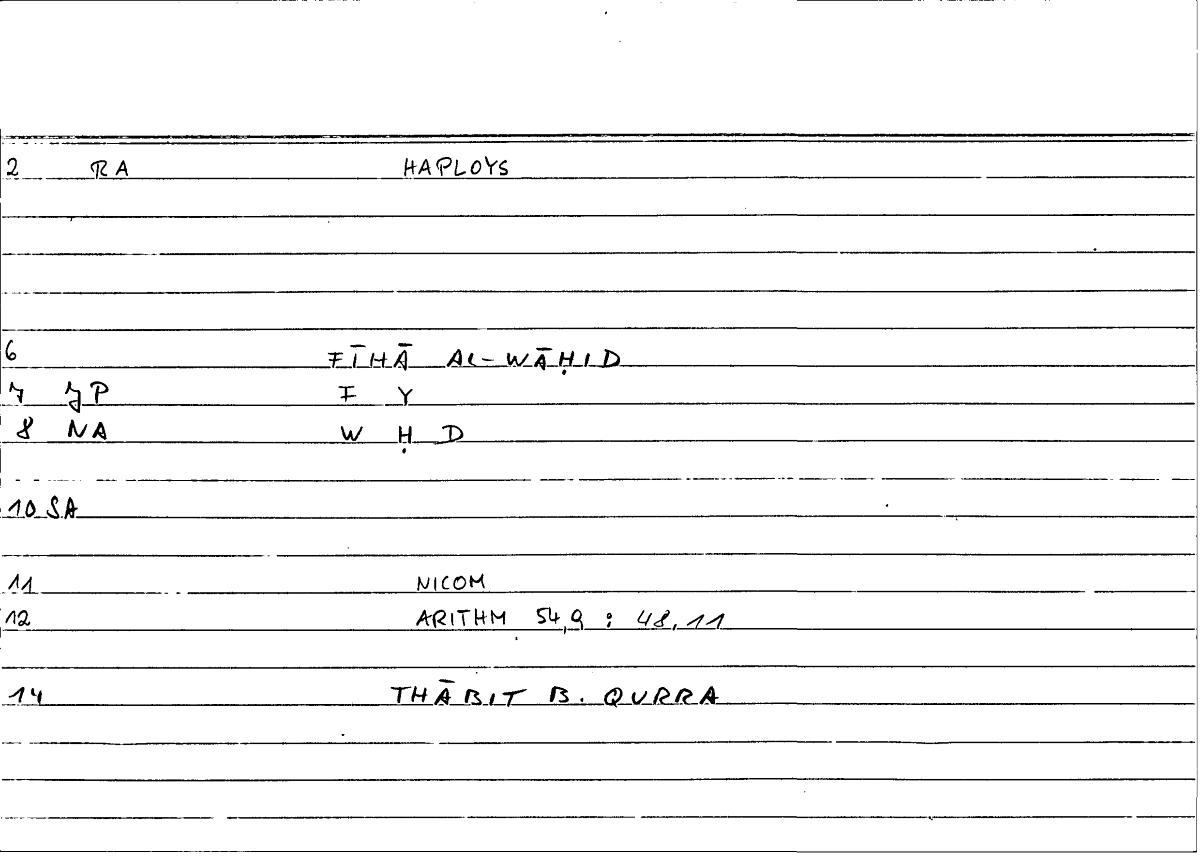 2 RA HAPLOYS
6 FĪHĀ AL-WĀḤID
7 JP F Y
8 NA W Ḥ D
10 SA
11 NICOM
12 ARITHM 54,9 : 48,11
14 THĀBIT B. QURRA